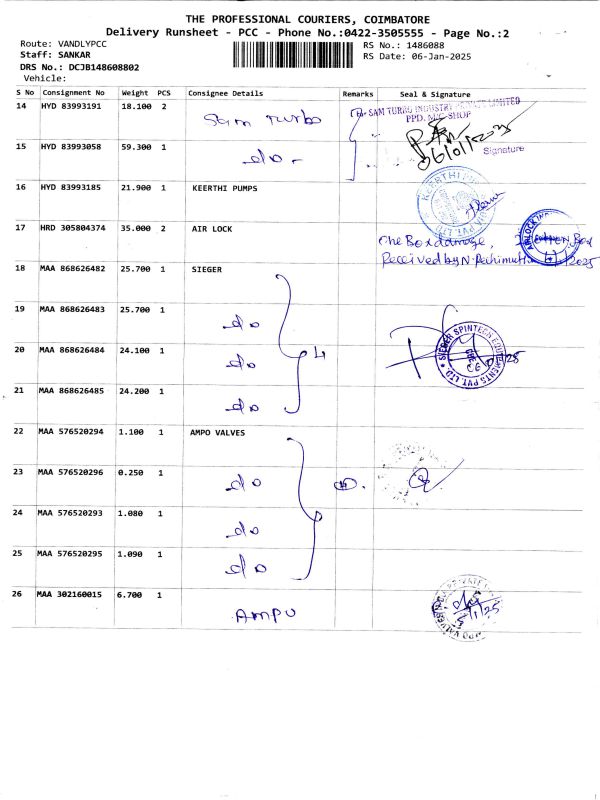 THE PROFESSIONAL COURIERS, COIMBATORE
Delivery Runsheet - PCC - Phone No.:0422-3505555 - Page No.:2
Route: VANDLYPCC RS No.: 1486088
Staff: SANKAR RS Date: 06-Jan-2025
DRS No.: DCJB148608802
Vehicle:
S No Consignment No Weight PCS Consignee Details Remarks Seal & Signature
14 HYD 83993191 18.100 2 Sam Turbo
SAM TURBO INDUSTRY PRIVATE LIMITED
PPD. M/C SHOP
06/01/2025
Signature
15 HYD 83993058 59.300 1 do -
16 HYD 83993185 21.900 1 KEERTHI PUMPS
KEERTHI PVT. LTD
17 HRD 305804374 35.000 2 AIR LOCK
One Box damage,
Received by N. Pechimuthu 2025
18 MAA 868626482 25.700 1 SIEGER
19 MAA 868626483 25.700 1 do
20 MAA 868626484 24.100 1 do 4
SIEGER SPINTECH EQUIPMENTS PVT. LTD.
21 MAA 868626485 24.200 1 do
22 MAA 576520294 1.100 1 AMPO VALVES
23 MAA 576520296 0.250 1 do
24 MAA 576520293 1.080 1 do
25 MAA 576520295 1.090 1 do
26 MAA 302160015 6.700 1 AMPO